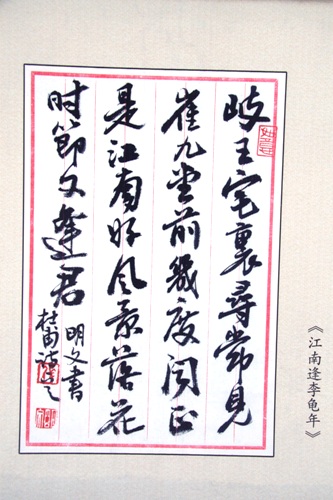 岐王宅裏尋常見
崔九堂前幾度闻正
是江南好风景落花
时節又逢君
明文書
杜甫诗
《江南逢李龟年》